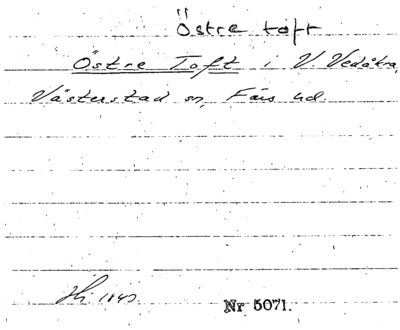 Östre toft
Östre Toft i V. Vedåkra,
Västerstad sn, Färs hd.
Nr 5071.